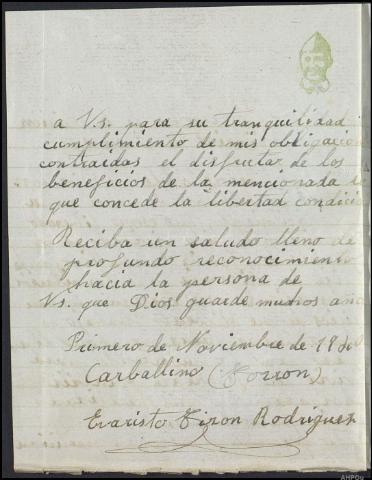 a Vs. para su tranquilidad i
cumplimiento de mis obligacio
contraidas el disfruta de los
beneficios de la mencionada
que concede la libertad condicio
Reciba un saludo lleno de
profundo reconocimiento
hacia la persona de
Vs. que Dios guarde muchos año
Primero de Noviembre de
Carballino (Torron)
Evaristo Tizon Rodriguez
AHPOu